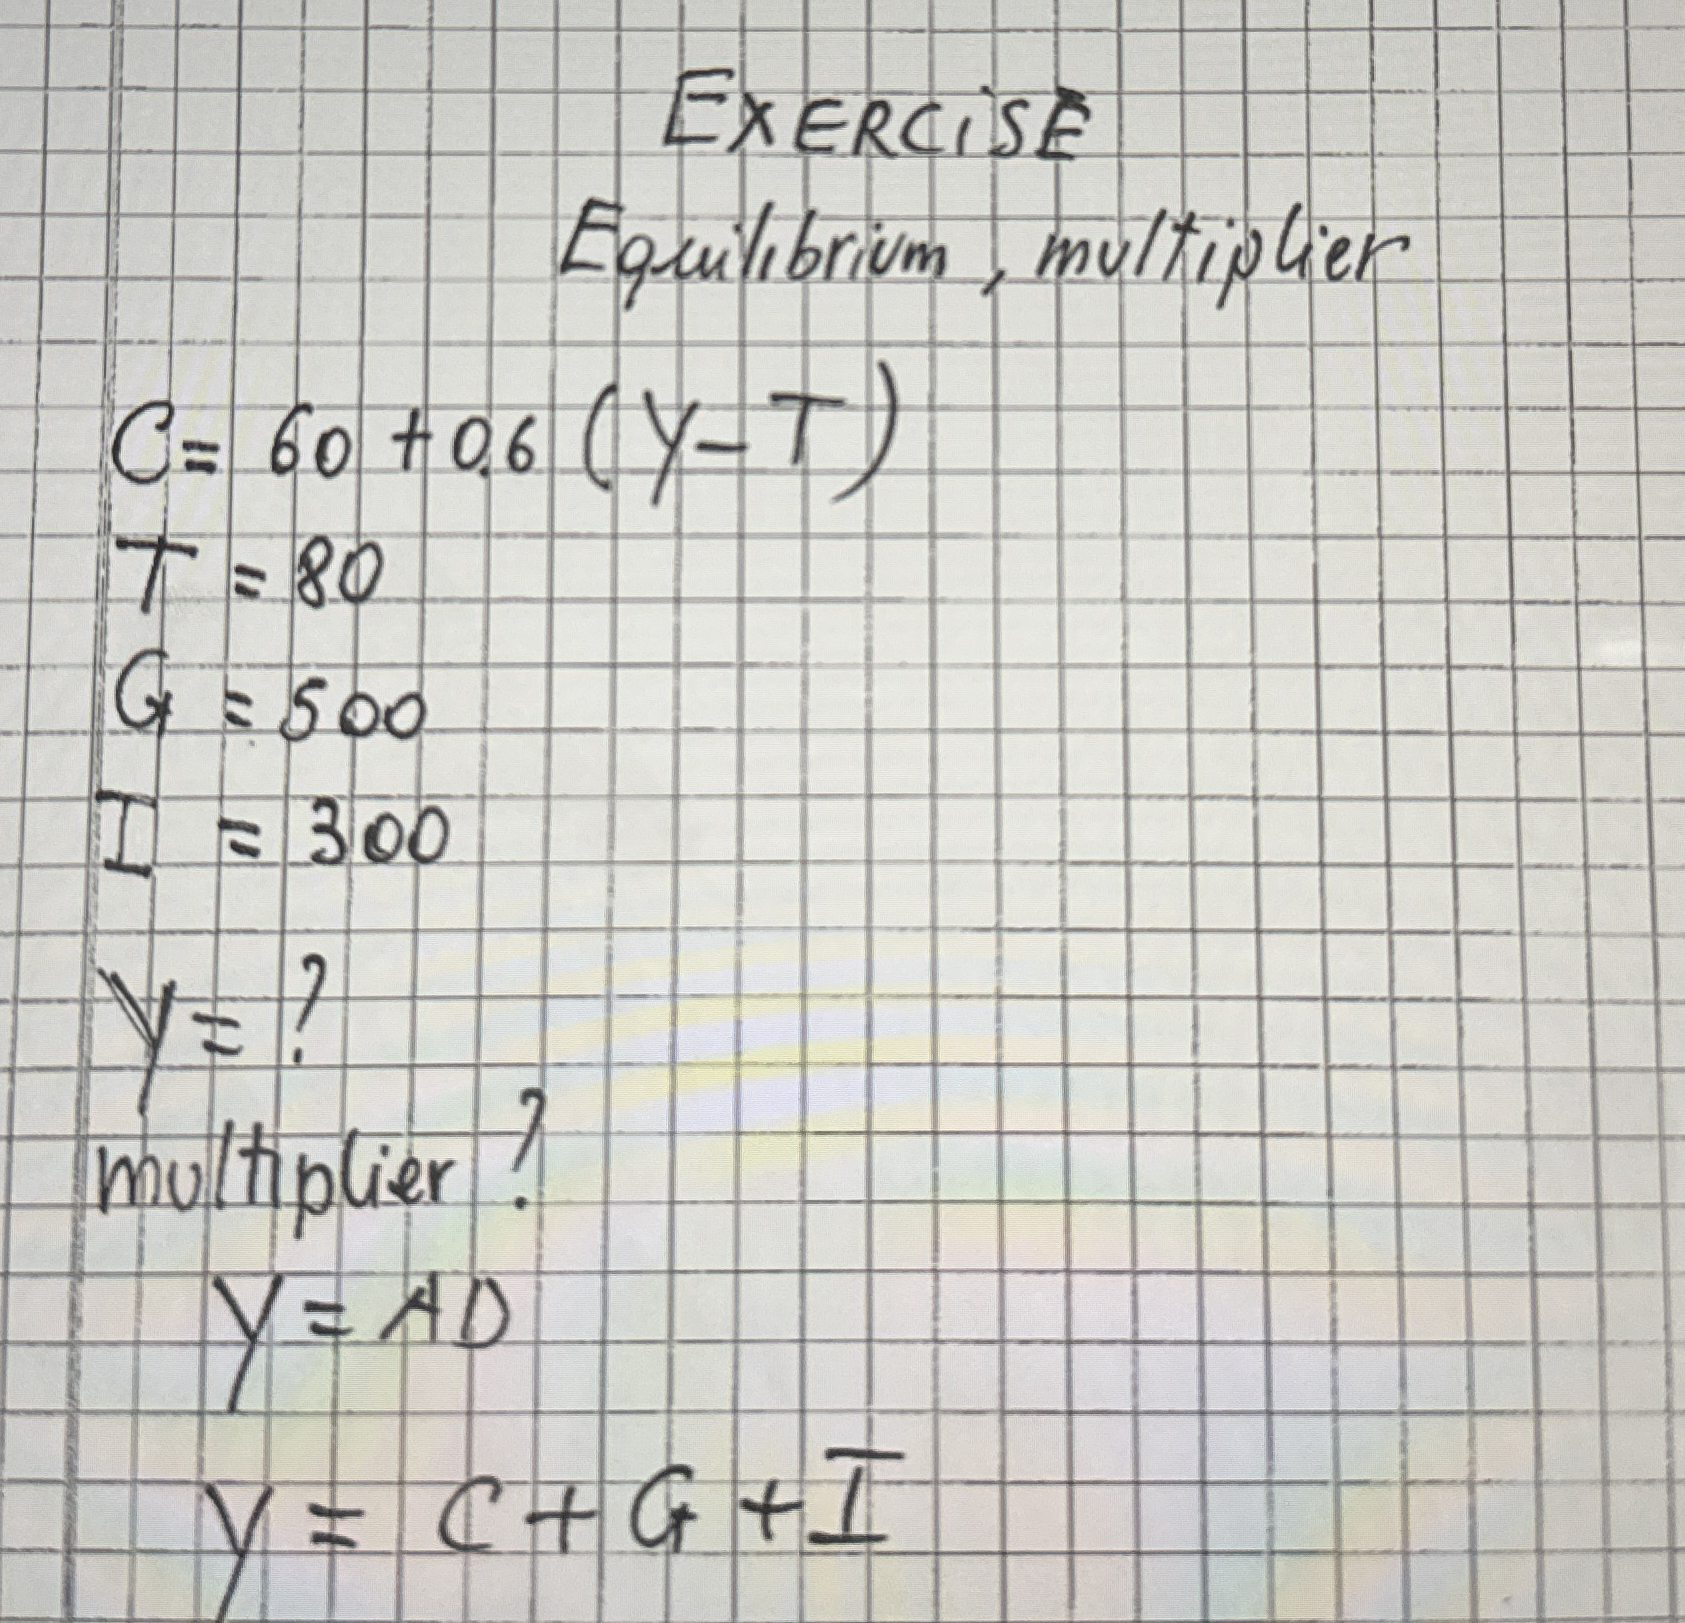 EXERCiSE
Equilibrium, multiplier
C = 60 + 0.6 (Y - T)
T = 80
G = 500
I = 300
Y = ?
multiplier?
Y = AD
Y = C + G + I